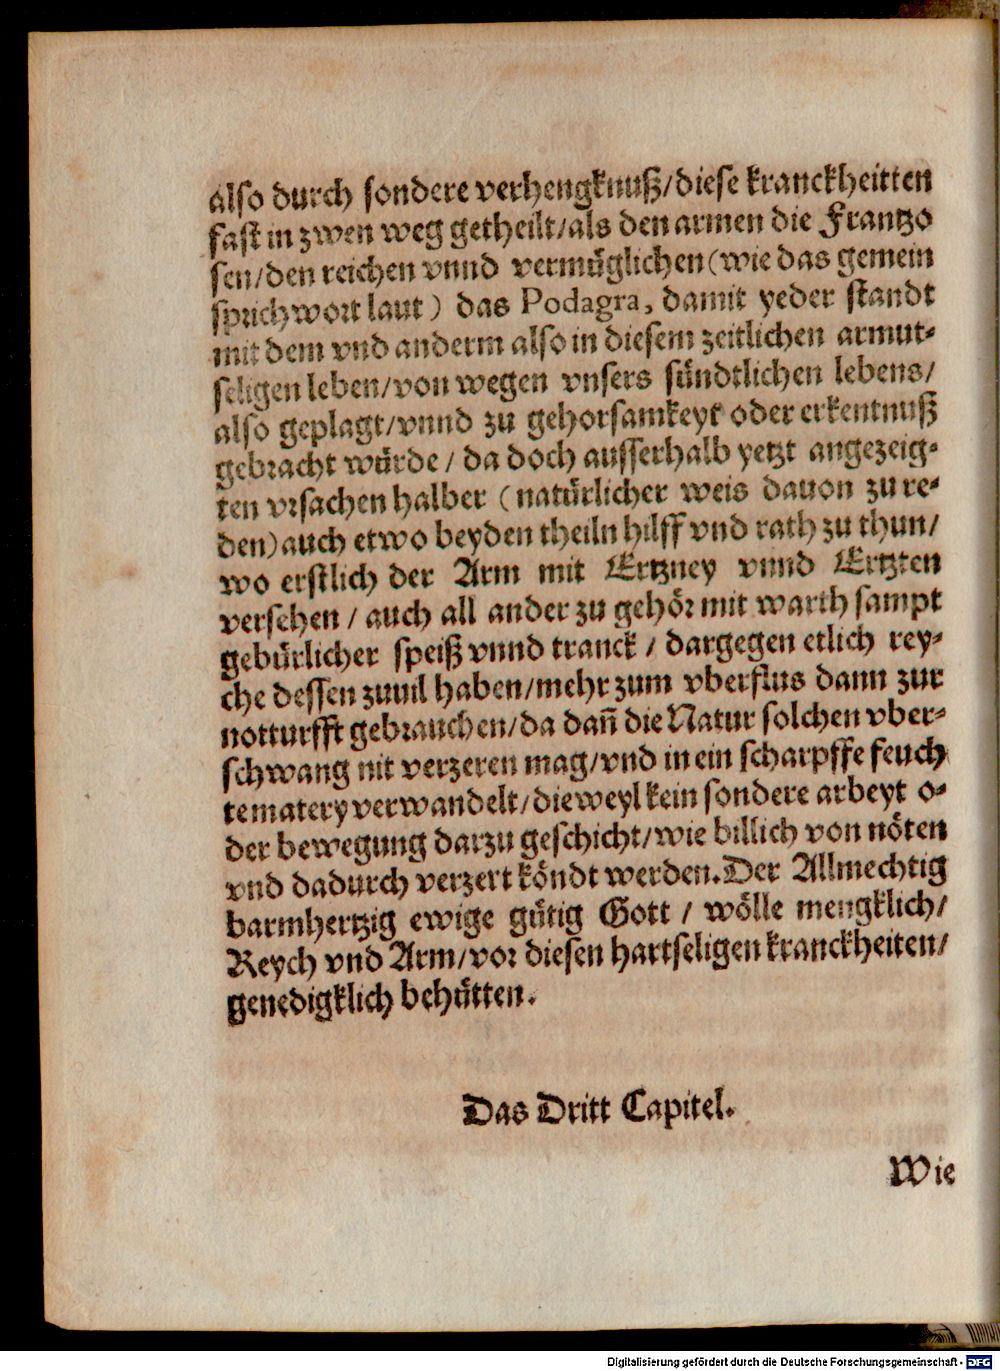 also durch sondere verhengknuß/diese kranckheitten
fast in zwen weg getheilt/als den armen die Frantzo
sen/den reichen vnnd vermüglichen (wie das gemein
sprichwort laut) das Podagra, damit yeder standt
mit dem vnd anderm also in diesem zeitlichen armut-
seligen leben/von wegen vnsers sündtlichen lebens/
also geplagt/vnnd zu gehorsamkeyt oder erkentnuß
gebracht würde / da doch ausserhalb yetzt angezeig-
ten vrsachen halber (natürlicher weis dauon zu re-
den) auch etwo beyden theiln hilff vnd rath zu thun/
wo erstlich der Arm mit Ertzney vnnd Ertzten
versehen / auch all ander zu gehör mit warth sampt
gebürlicher speiß vnnd tranck / dargegen etlich rey-
che dessen zuuil haben/mehr zum vberflus dann zur
notturfft gebrauchen/da dañ die Natur solchen vber-
schwang nit verzeren mag/vnd in ein scharpffe feuch
tematery verwandelt/dieweyl kein sondere arbeyt o-
der bewegung darzu geschicht/wie billich von nöten
vnd dadurch verzert köndt werden. Der Allmechtig
barmhertzig ewige gütig Gott / wölle mengklich/
Reych vnd Arm/vor diesen hartseligen kranckheiten/
genedigklich behütten.
Das Dritt Capitel.
Wie
Digitalisierung gefördert durch die Deutsche Forschungsgemeinschaft - DFG